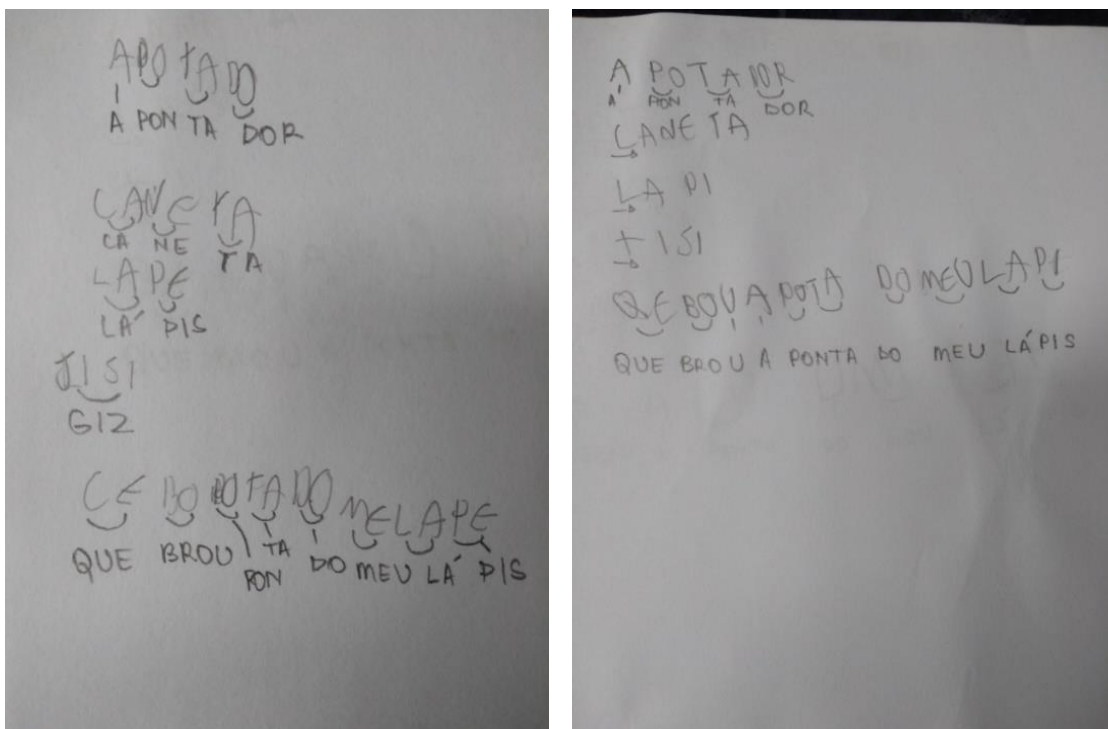 APOTADO
A PON TA DOR
CANETA
CA NE TA
LAPE
LÁ PIS
JISI
GIZ
CE BO POTADO MELAPE
QUE BROU PON TA DO MEU LÁ PIS
A POTADOR
A PON TA DOR
CANETA
LA PI
ISI
QE BOU A POTA DO MEU LAPI
QUE BROU A PONTA DO MEU LÁPIS